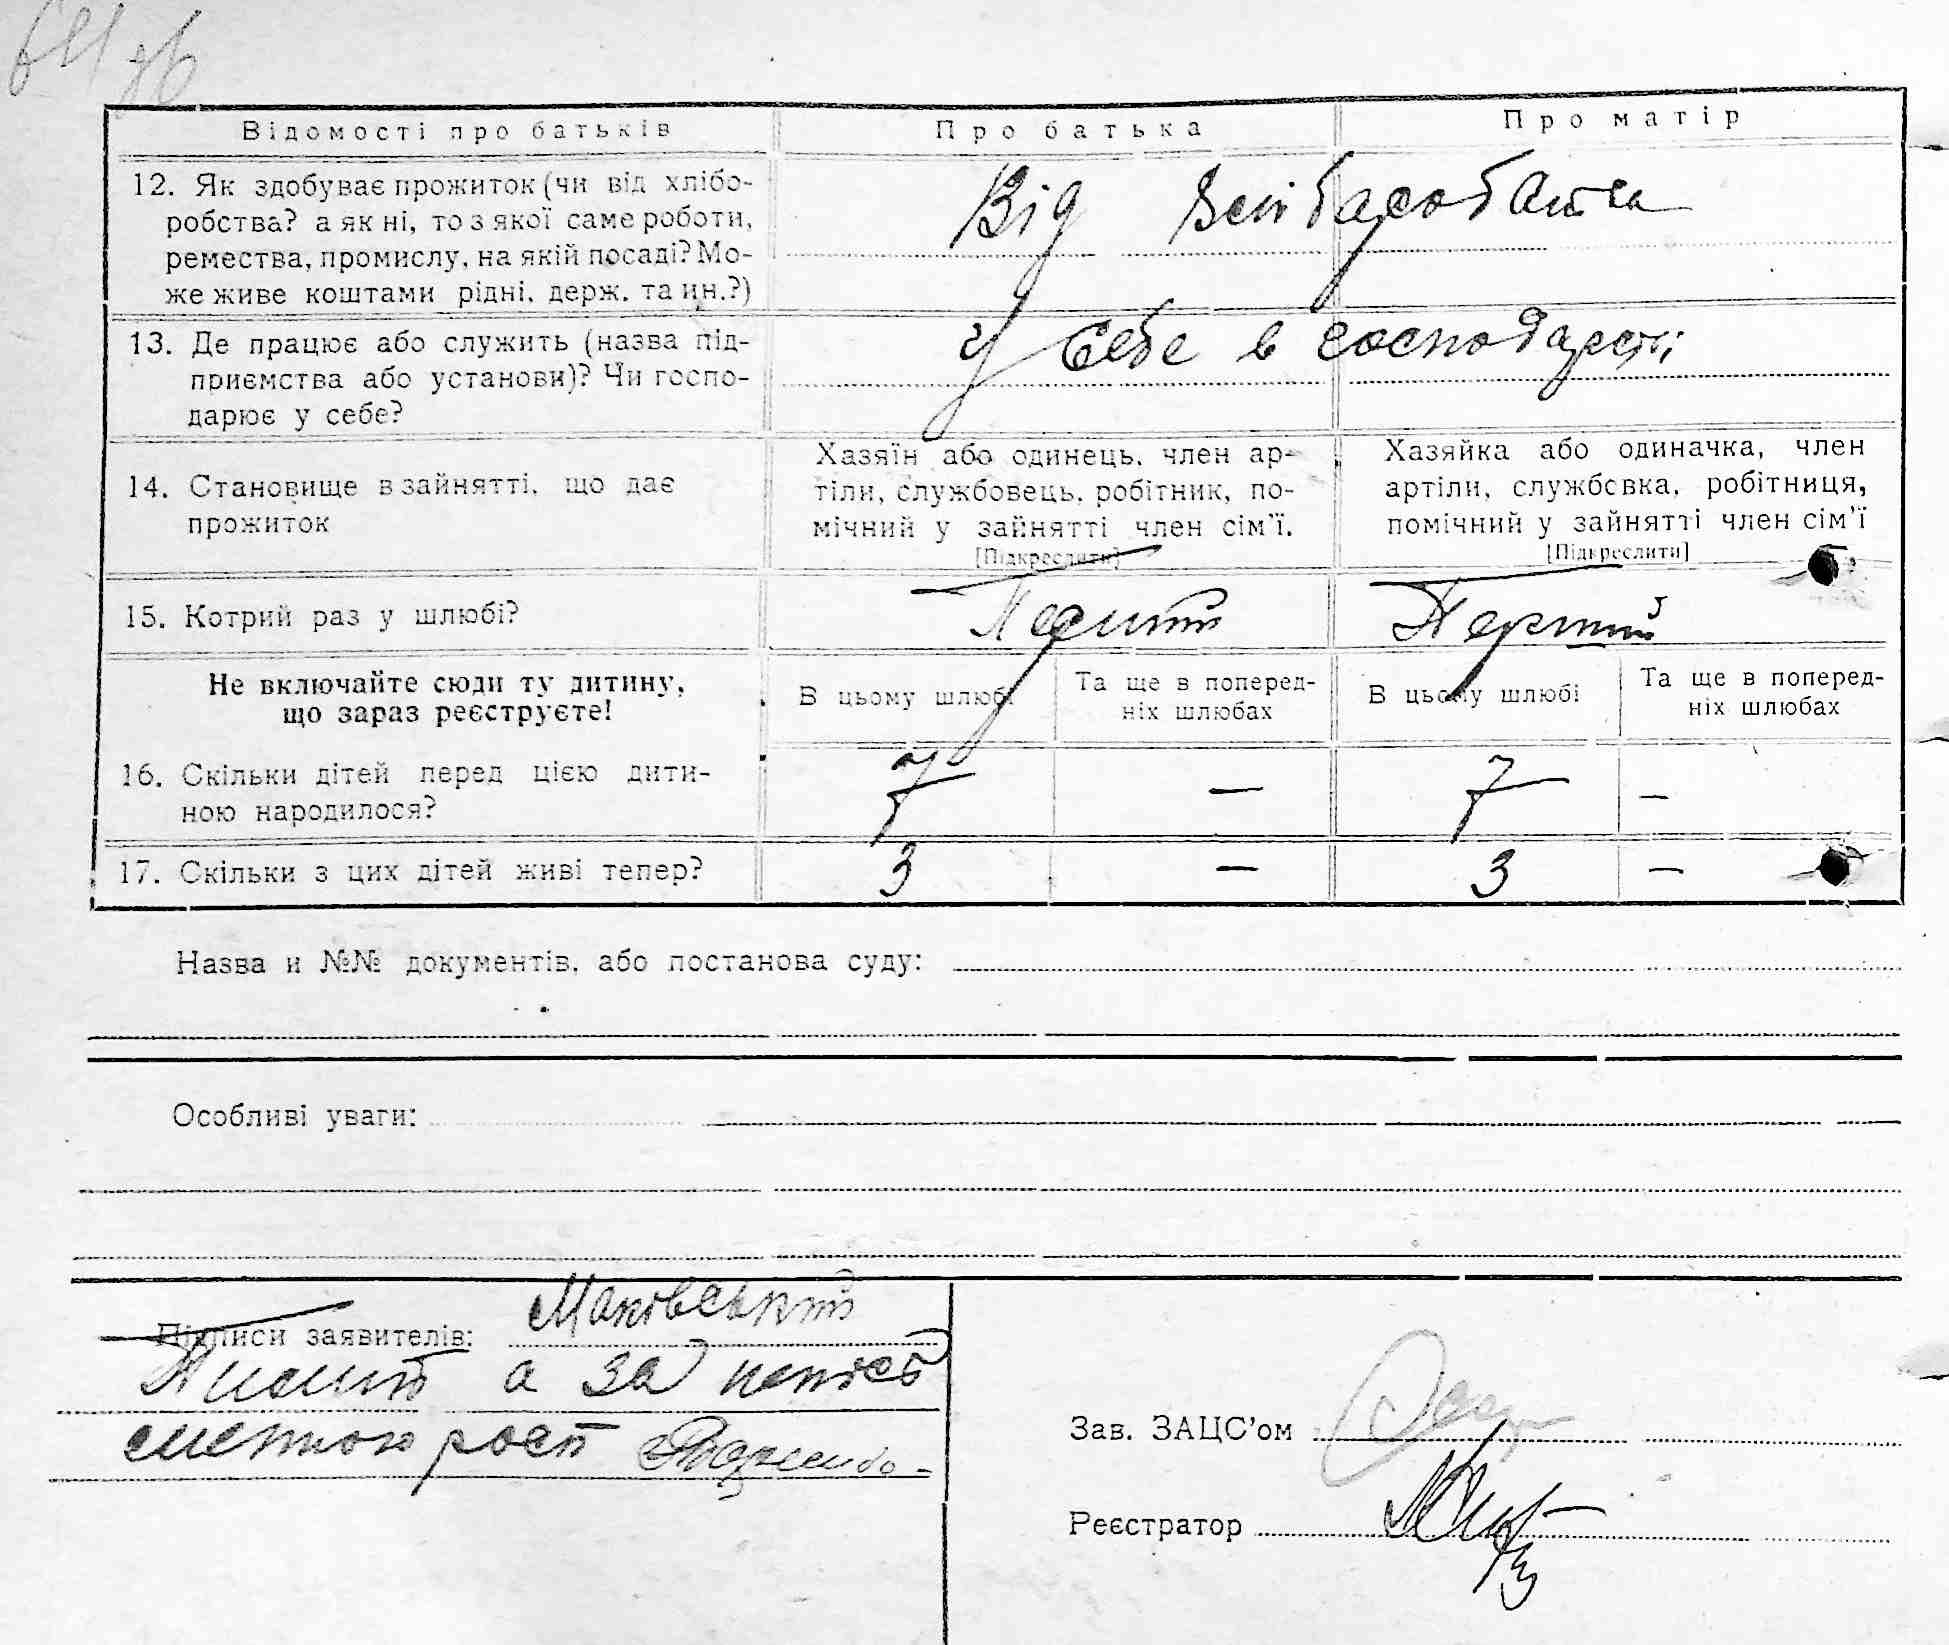 Відомості про батьків Про батька Про матір
12. Як здобуває прожиток (чи від хлібо-
робства? а як ні, то з якої саме роботи,
ремества, промислу, на якій посаді? Мо-
же живе коштами рідні, держ. та ин.?)
Від
13. Де працює або служить (назва під-
приємства або установи)? Чи госпо-
дарює у себе?
У себе в господарстві
14. Становище в зайнятті, що дає
прожиток
Хазяїн або одинець, член ар-
тіли, службовець, робітник, по-
мічний у зайнятті член сім'ї.
[Підкреслити]
Хазяйка або одиначка, член
артіли, службовка, робітниця,
помічний у зайнятті член сім'ї
[Підкреслити]
15. Котрий раз у шлюбі? Перший Перший
Не включайте сюди ту дитину,
що зараз реєструєте!
В цьому шлюбі
Та ще в поперед-
ніх шлюбах
В цьому шлюбі
Та ще в поперед-
ніх шлюбах
16. Скільки дітей перед цією дити-
ною народилося?
7 — 7 —
17. Скільки з цих дітей живі тепер? 3 — 3 —
Назва и №№ документів, або постанова суду:
Особливі уваги:
Підписи заявителів: Маківський
а за
Зав. ЗАЦС'ом
Реєстратор